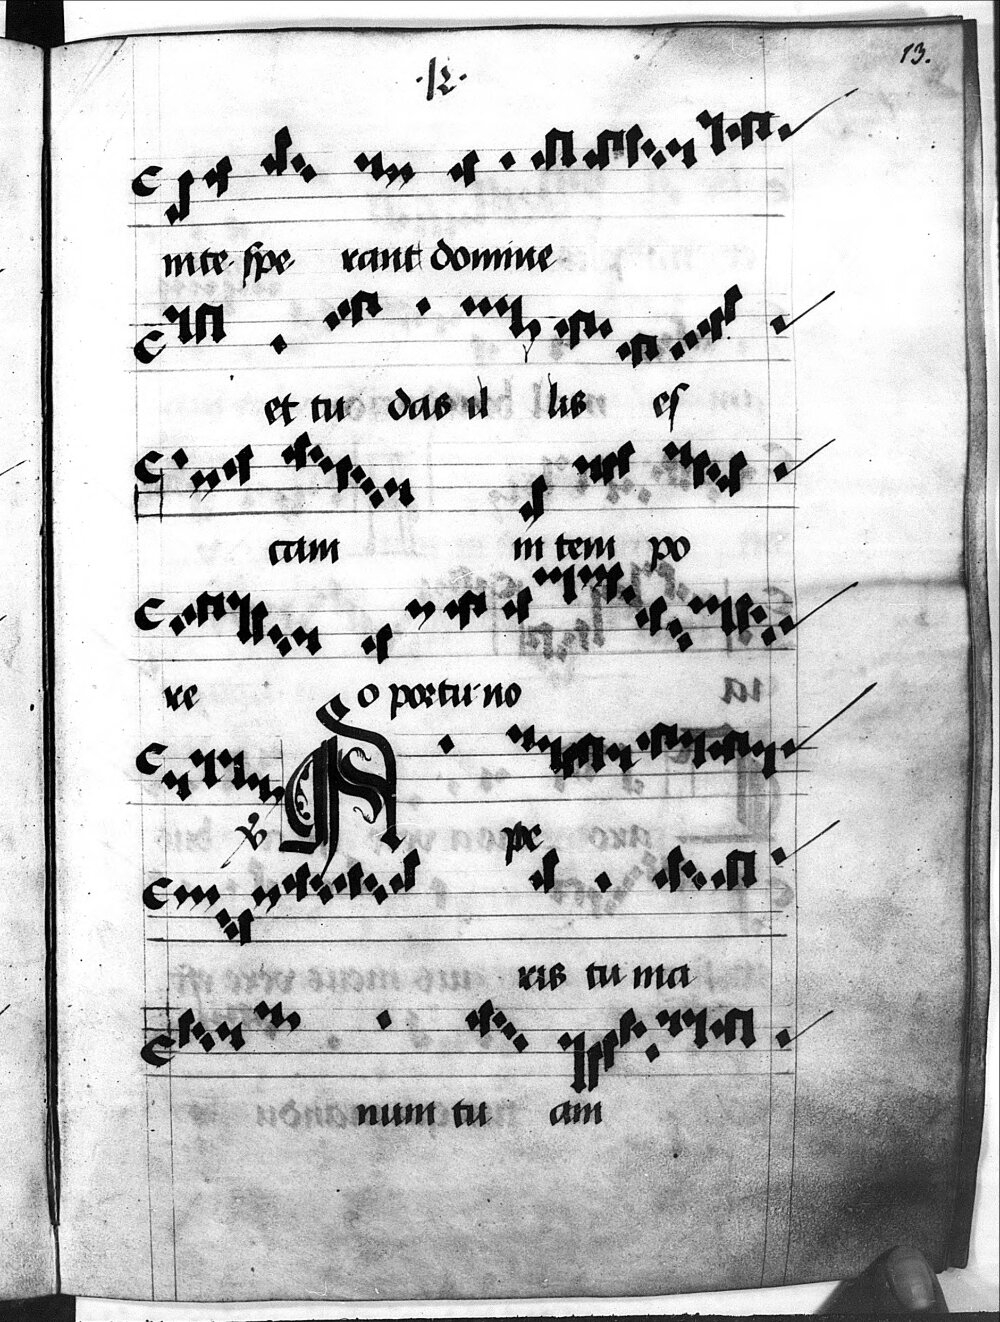 13.
·12·
inte spe rant domine
et tu das il lis es
cam in tem po
re o portu no
℣ A pe
ris tu ma
num tu am